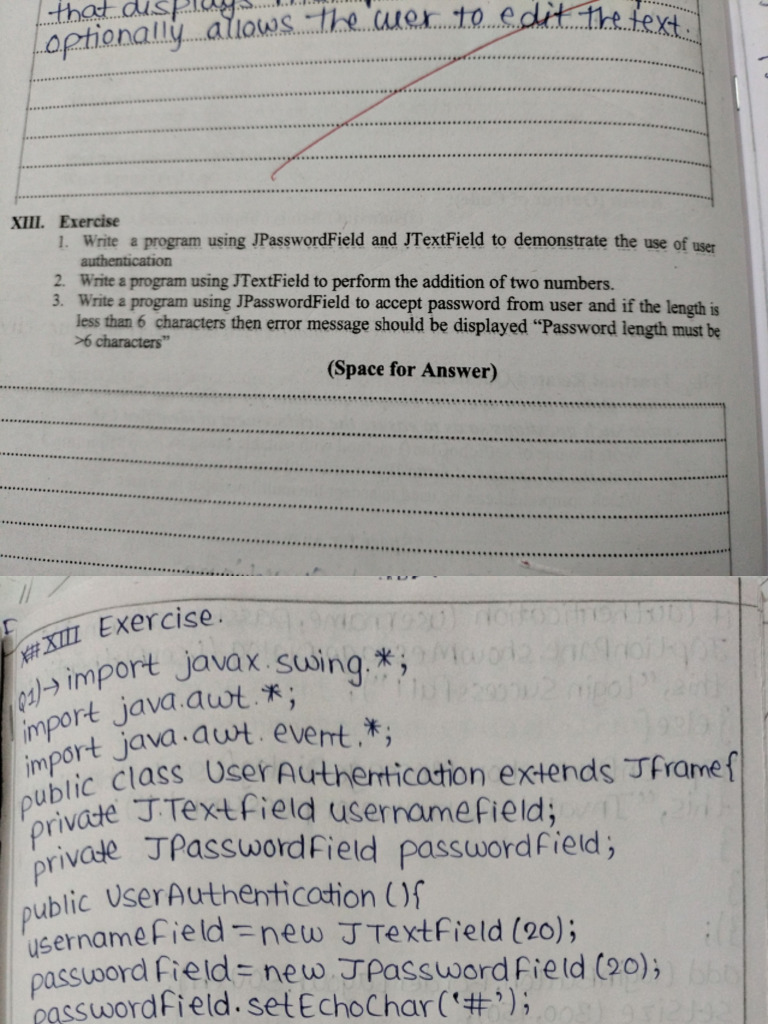 that displays
optionally allows the user to edit the text.
XIII. Exercise
1. Write a program using JPasswordField and JTextField to demonstrate the use of user
authentication
2. Write a program using JTextField to perform the addition of two numbers.
3. Write a program using JPasswordField to accept password from user and if the length is
less than 6 characters then error message should be displayed “Password length must be
>6 characters”
(Space for Answer)
## XIII Exercise.
Q1)→ import javax.swing.*;
import java.awt.*;
import java.awt.event.*;
public class UserAuthentication extends JFrame{
private J.TextField usernameField;
private JPasswordField passwordField;
public UserAuthentication (){
usernameField = new JTextField (20);
passwordField = new JPasswordField (20);
passwordField.setEchoChar('#');